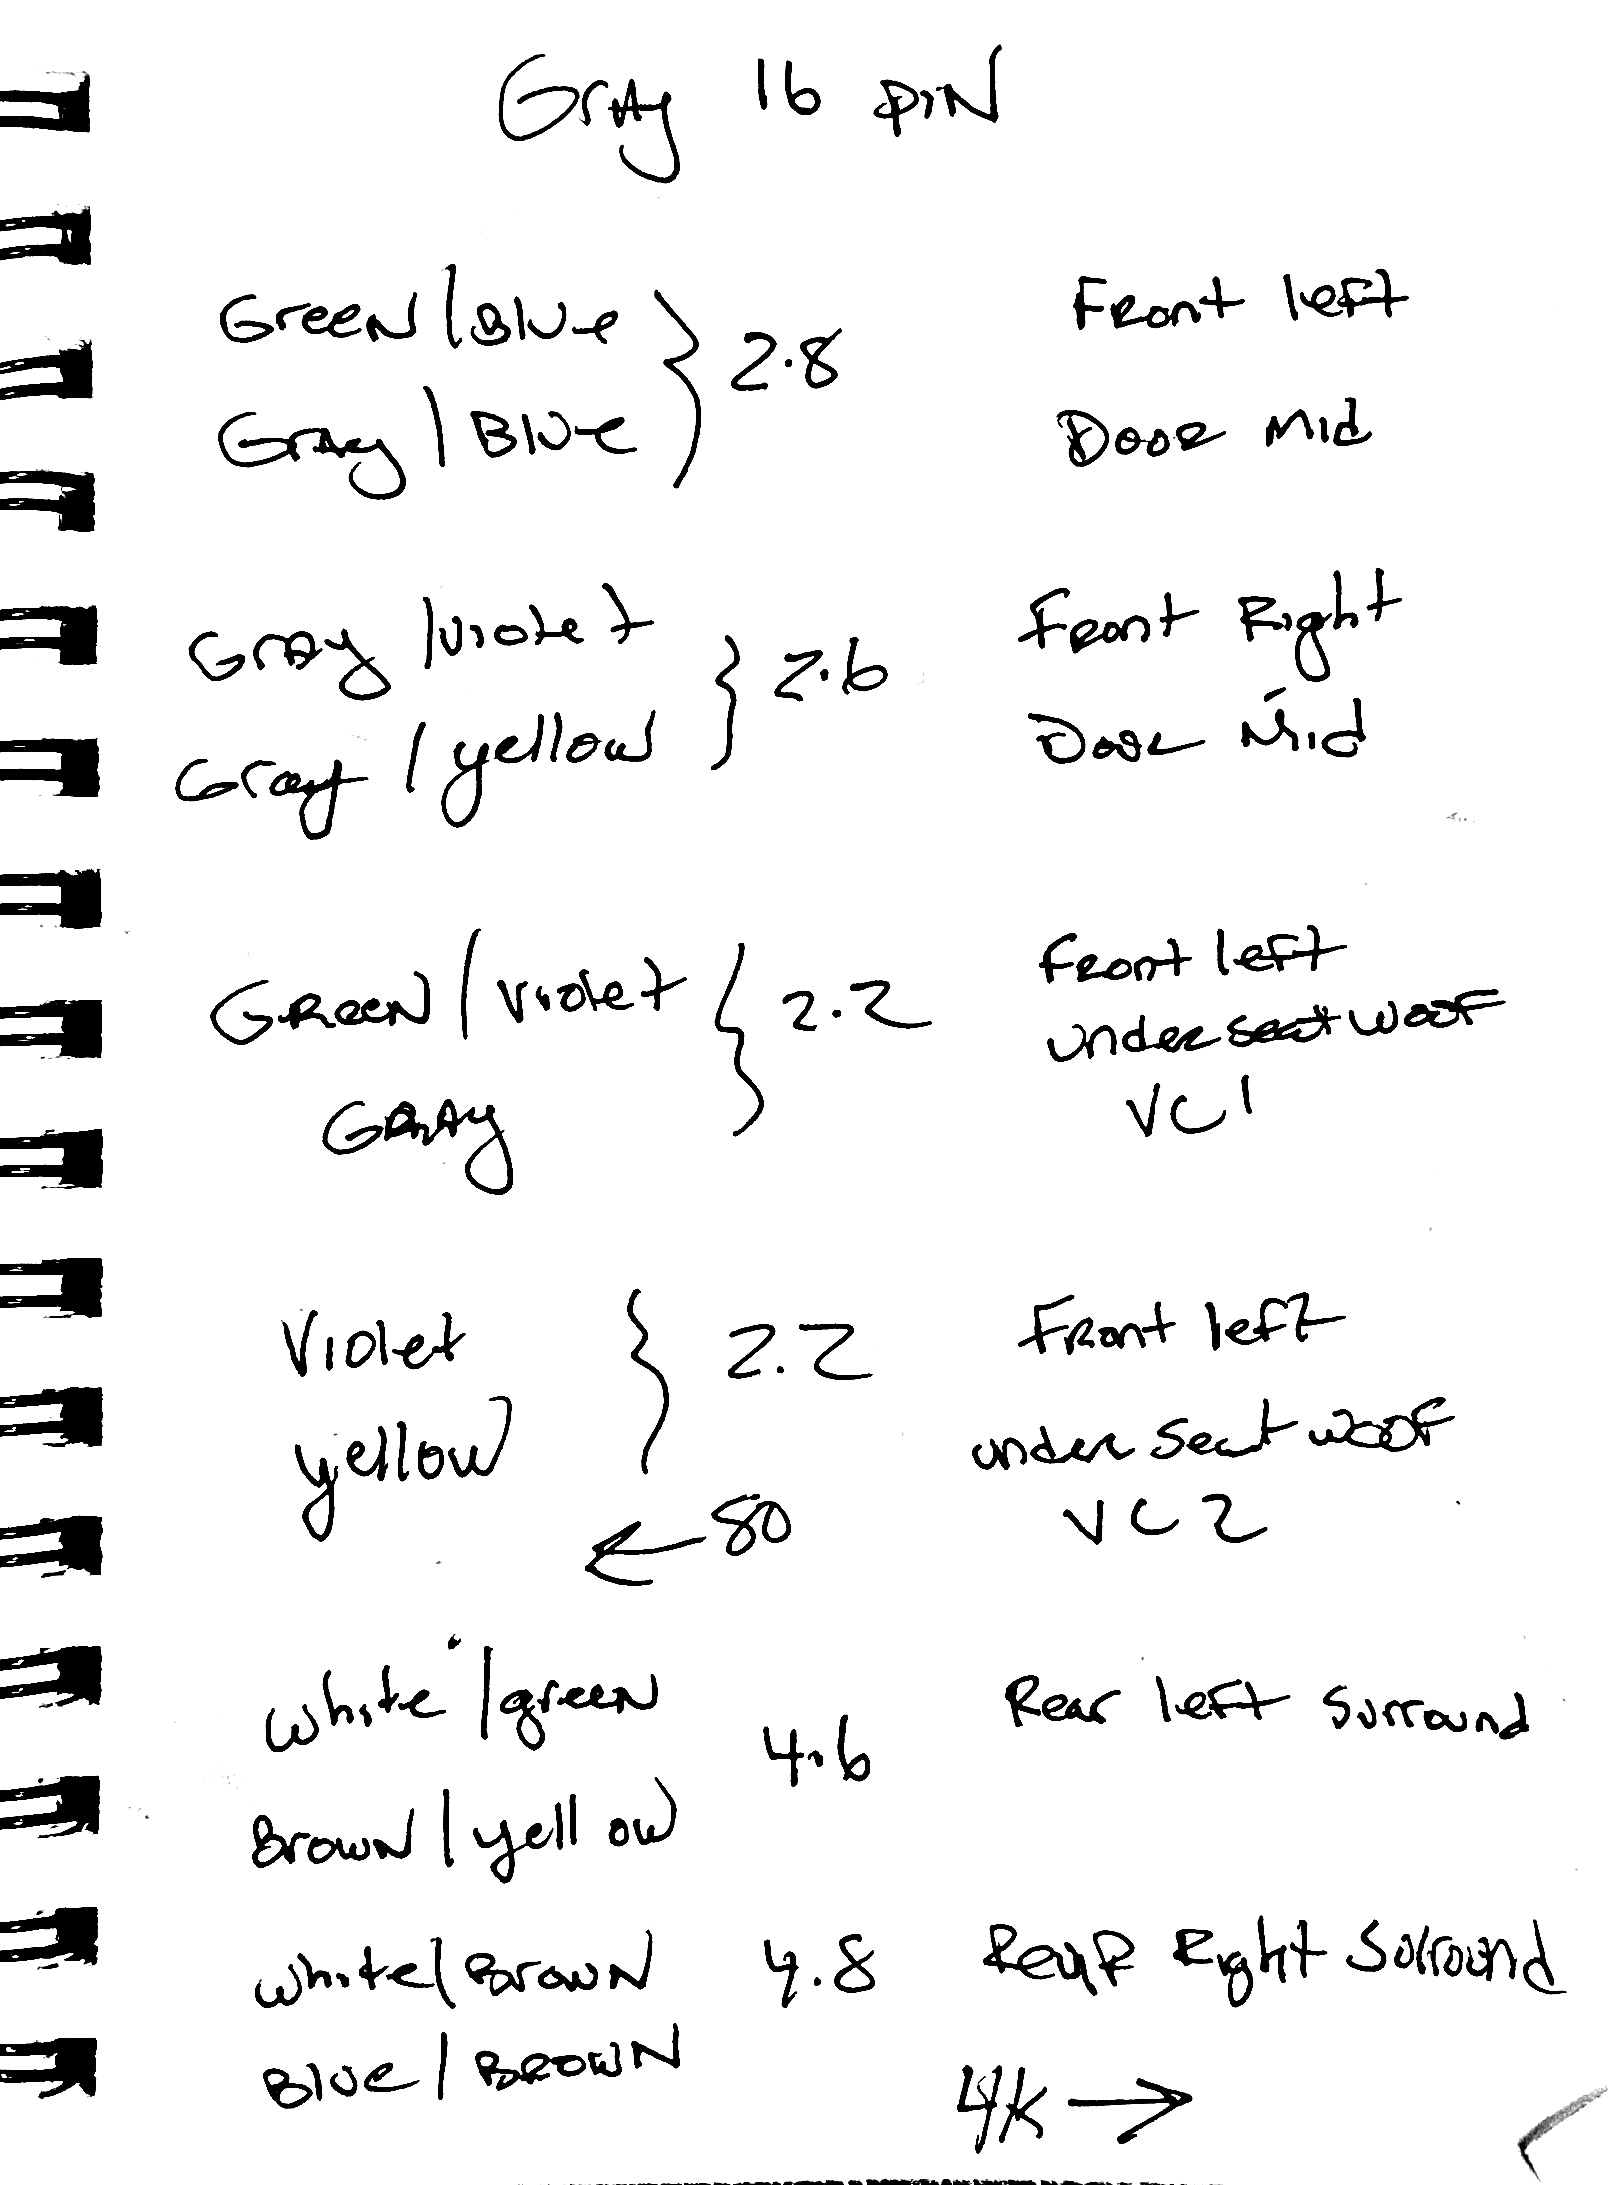 Gray 16 pin
Green/Blue } 2.8 Front left
Gray/Blue Door Mid
Gray/violet } 2.6 Front Right
Gray/yellow Door Mid
Green/violet } 2.2 Front left
under seat woof
Gray VC1
Violet } 2.2 Front left
yellow under seat woof
← 80 VC2
white/green 4.6 Rear left Surround
Brown/yellow
white/Brown 4.8 Rear Right Surround
Blue/Brown
4K →